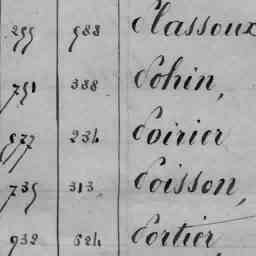 299 988 Plassoux
751 388 Pohin,
577 234 Poirier
735 313 Poisson,
932 524 Portier